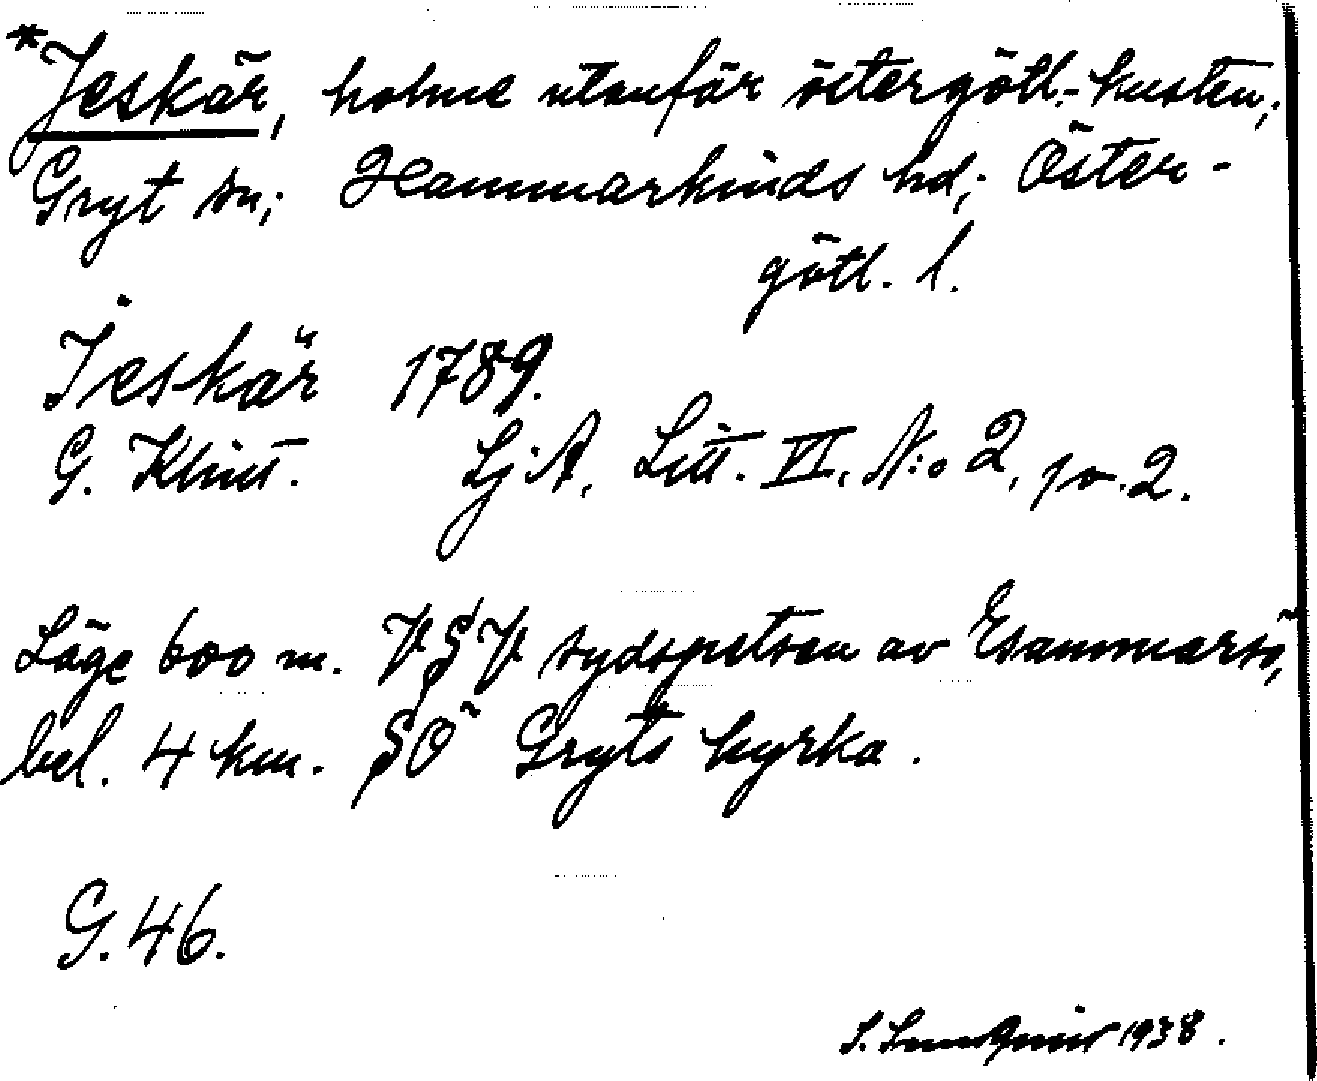 *Jeskär, holme utanför östergötl.-kusten;
Gryt sn; Hammarkinds hd; Öster-
götl. l.
Jeskär 1789.
G. Klint. Sj. A. Litt. VI. N:o 2, pr. 2.
Läge 600 m. VSV sydspetsen av Esammarsö,
bel. 4 km. SO Gryts kyrka.
G. 46.
S. 1938.